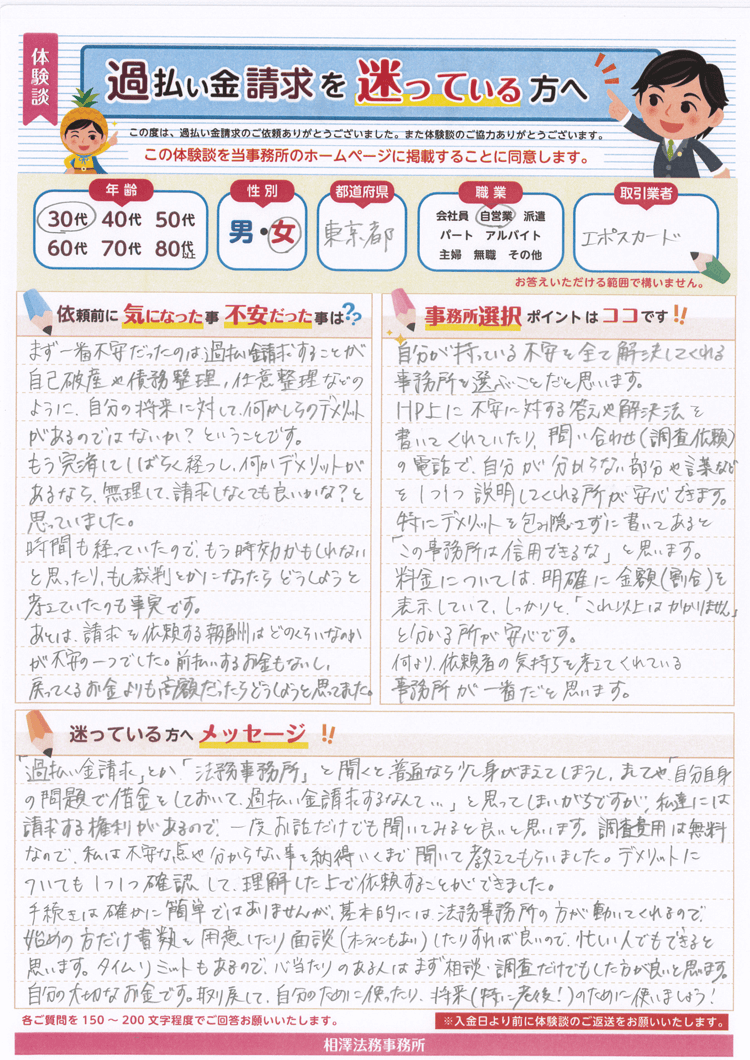 体験談
過払い金請求を 迷っている 方へ
この度は、過払い金請求のご依頼ありがとうございました。また体験談のご協力ありがとうございます。
この体験談を当事務所のホームページに掲載することに同意します。
年齢
30代 40代 50代
60代 70代 80代以上
性別
男・女
都道府県
東京都
職業
会社員 自営業 派遣
パート アルバイト
主婦 無職 その他
取引業者
エポスカード
お答えいただける範囲で構いません。
依頼前に 気になった事 不安だった事は??
まず一番不安だったのは過払い金請求することが
自己破産や債務整理、任意整理などの
ように、自分の将来に対して、何かしらのデメリット
があるのではないか?ということです。
もう完済してしばらく経つし、何かデメリットが
あるなら、無理して、請求しなくても良いかな?と
思っていました。
時間も経っていたので、もう時効かもしれない
と思ったり、もし裁判とかになったらどうしようと
考えていたのも事実です。
あとは、請求を依頼する報酬はどのくらいなのか
が不安の一つでした。前払いするお金もないし、
戻ってくるお金よりも高額だったらどうしようと思ってました。
事務所選択 ポイントは ココです!!
自分が持っている不安を全て解決してくれる
事務所を選ぶことだと思います。
HP上に不安に対する答えや解決法を
書いてくれていたり、問い合わせ(調査依頼)
の電話で、自分が分からない部分や言葉など
を1つ1つ説明してくれる所が安心できます。
特にデメリットを包み隠さずに書いてあると
「この事務所は信用できるな」と思います。
料金については、明確に金額(割合)を
表示していて、しっかりと、「これ以上はかかりません」
と分かる所が安心です。
何より、依頼者の気持ちを考えてくれている
事務所が一番だと思います。
迷っている方へ メッセージ !!
「過払い金請求」とか「法務事務所」と聞くと、普通なら少し身がまえてしまうし、ましてや「自分自身
の問題で借金をしておいて、過払い金請求するなんて…」と思ってしまいがちですが、私達には
請求する権利があるので、一度お話だけでも聞いてみると良いと思います。調査費用は無料
なので、私は不安な点や分からない事を納得いくまで聞いて教えてもらいました。デメリットに
ついても1つ1つ確認して、理解した上で依頼することができました。
手続きは確かに簡単ではありませんが、基本的には、法務事務所の方が動いてくれるので、
始めの方だけ書類を用意したり面談(オンラインもあり)したりすれば良いので、忙しい人でもできると
思います。タイムリミットもあるので、心当たりのある人はまず相談・調査だけでもした方が良いと思います。
自分の大切なお金です。取り戻して、自分のために使ったり、将来(特に老後!)のために使いましょう!
各ご質問を150〜200文字程度でご回答お願いいたします。
※入金日より前に体験談のご返送をお願いいたします。
相澤法務事務所